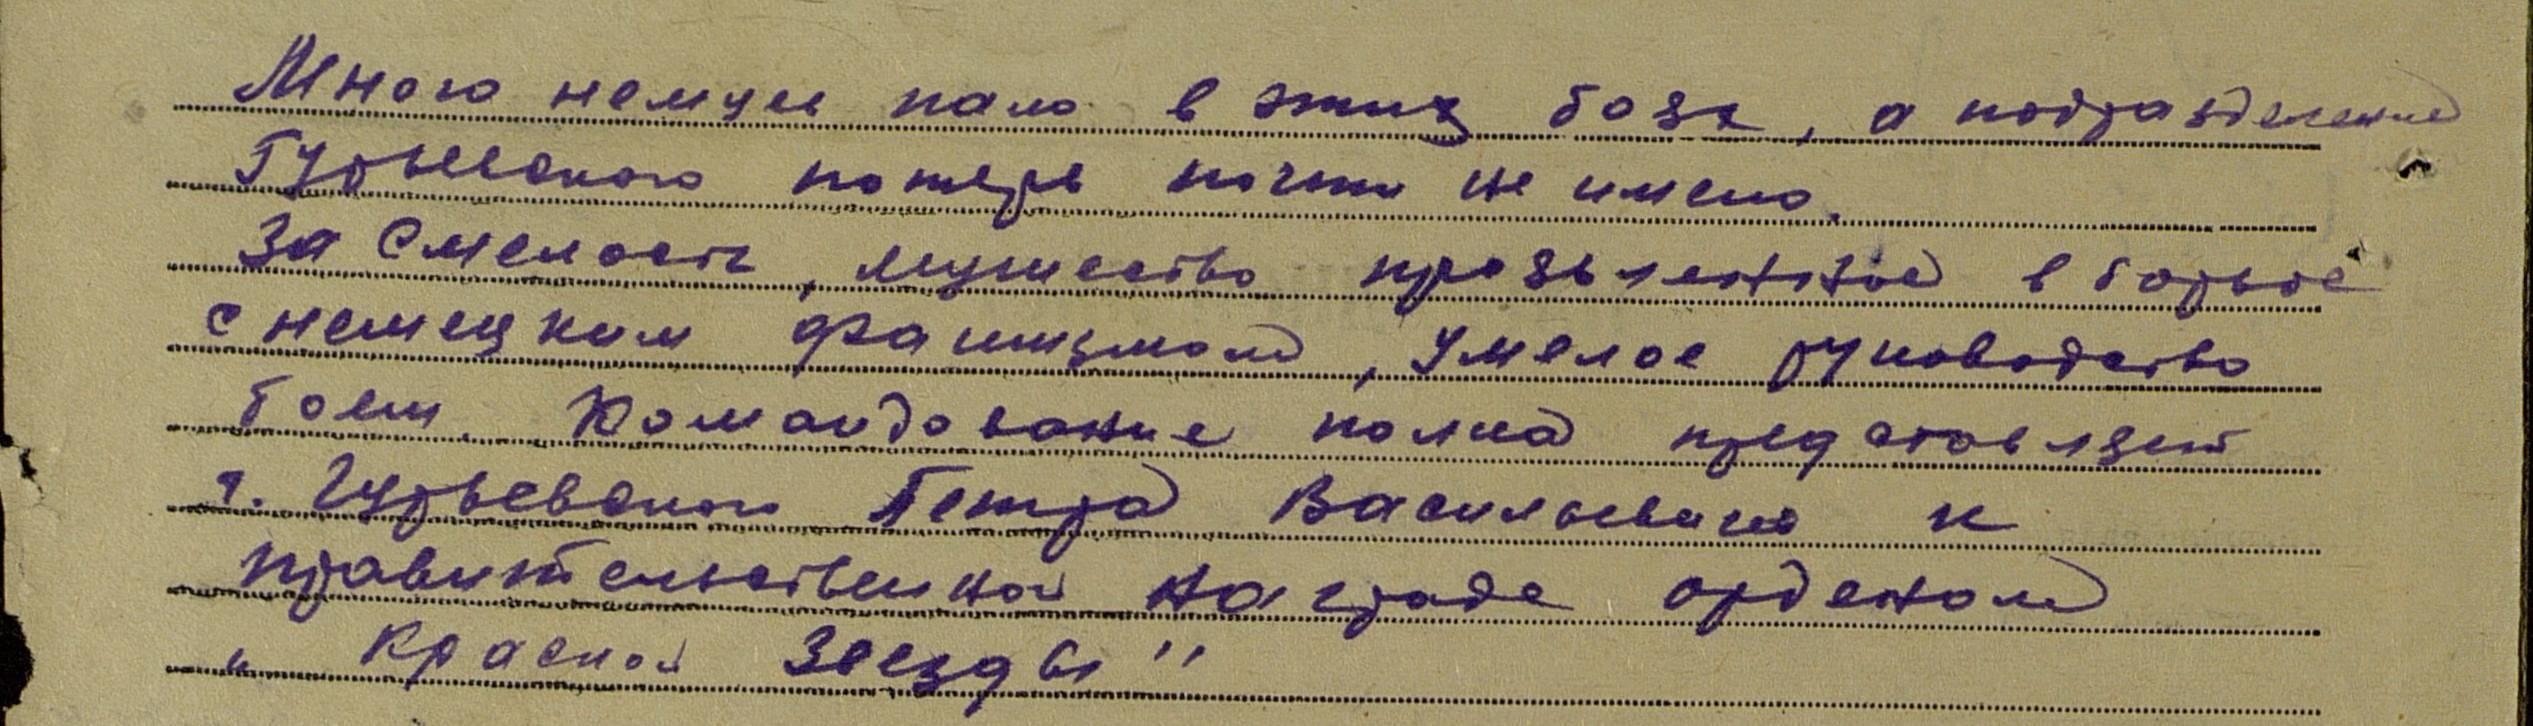 Много немцев пало в этих боях, а подразделение
Гурьевского потерь почти не имело.
За смелость, мужество проявленное в борьбе
с немецким фашизмом, умелое руководство
боем. Командование полка представляет
т. Гурьевского Петра Васильевича к
правительственной награде орденом
„Красной Звезды"